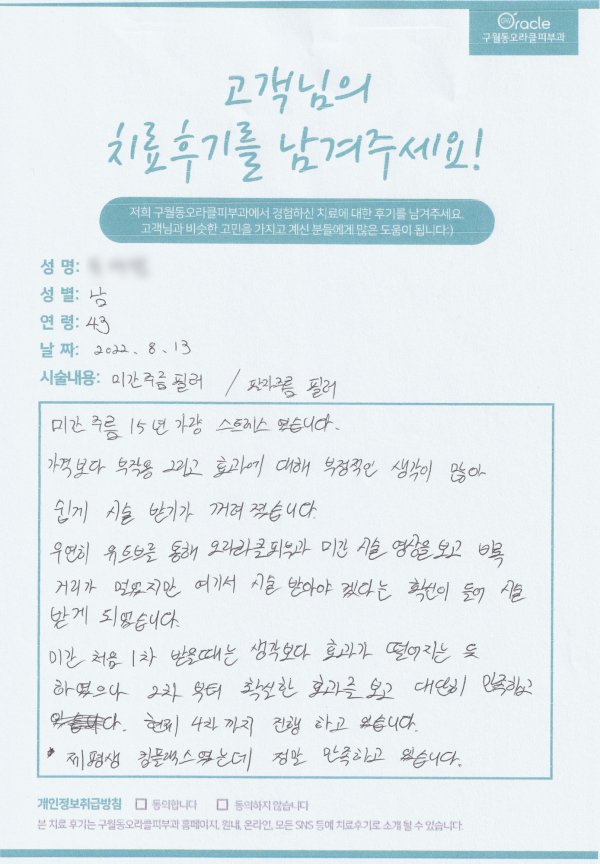 Oracle
구월동오라클피부과
고객님의
치료후기를 남겨주세요!
저희 구월동오라클피부과에서 경험하신 치료에 대한 후기를 남겨주세요.
고객님과 비슷한 고민을 가지고 계신 분들에게 많은 도움이 됩니다:)
성 명:
성 별: 남
연 령: 43
날 짜: 2022. 8. 13
시술내용: 미간주름 필러 / 팔자주름 필러
미간 주름 15년 가량 스트레스 였습니다.
가격보다 부작용 그리고 효과에 대해 부정적인 생각이 많아
쉽게 시술 받기가 꺼려졌습니다.
우연히 유트브를 통해 오라클피부과 미간 시술 영상을 보고 비록
거리가 멀었지만 여기서 시술 받아야 겠다는 확신이 들어 시술
받게 되었습니다.
미간 처음 1차 받을때는 생각보다 효과가 떨어지는 듯
하였으나 2차 부터 확실한 효과를 보고 대단히 만족하고
있습니다. 현재 4차 까지 진행 하고 있습니다.
* 제평생 컴플렉스였는데 정말 만족하고 있습니다.
개인정보취급방침 □ 동의합니다 □ 동의하지 않습니다
본 치료 후기는 구월동오라클피부과 홈페이지, 원내, 온라인, 모든 SNS 등에 치료후기로 소개 될 수 있습니다.